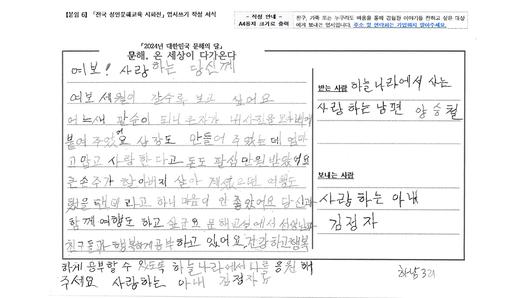 【붙임 6】 「전국 성인문해교육 시화전」 엽서쓰기 작성 서식
- 작성 안내 -
A4용지 크기로 출력
친구, 가족 또는 누구라도 배움을 통해 경험한 이야기를 전하고 싶은 대상
에게 보내는 엽서입니다. 주소 및 연락처는 기입하지 않아주세요.
『2024년 대한민국 문해의 달』
문해, 온 세상이 다가온다
여보! 사랑하는 당신께
여보 세월이 갈수록 보고 싶어요
어느새 팔순이 되니
붙여 주었어요 삼강도 만들어 주었는데 엄마
고맙고 사랑한다고 돈도 팔십만원 받았어요
큰손주가 할아버지 살아 계셨으면 여행도
라고 하니 마음이 안 좋았어요 당신과
함께 여행도 하고 싶군요 문해교실에서 선생님과
친구들과 행복하게 공부하고 있어요 건강하고 행복
하게 공부할 수 있도록 하늘나라에서 나를 응원해
주세요 사랑하는 아내 김정자
받는 사람
하늘나라에서 사는
사랑하는 남편 양승철
보내는 사람
사랑하는 아내
김정자
하남3리